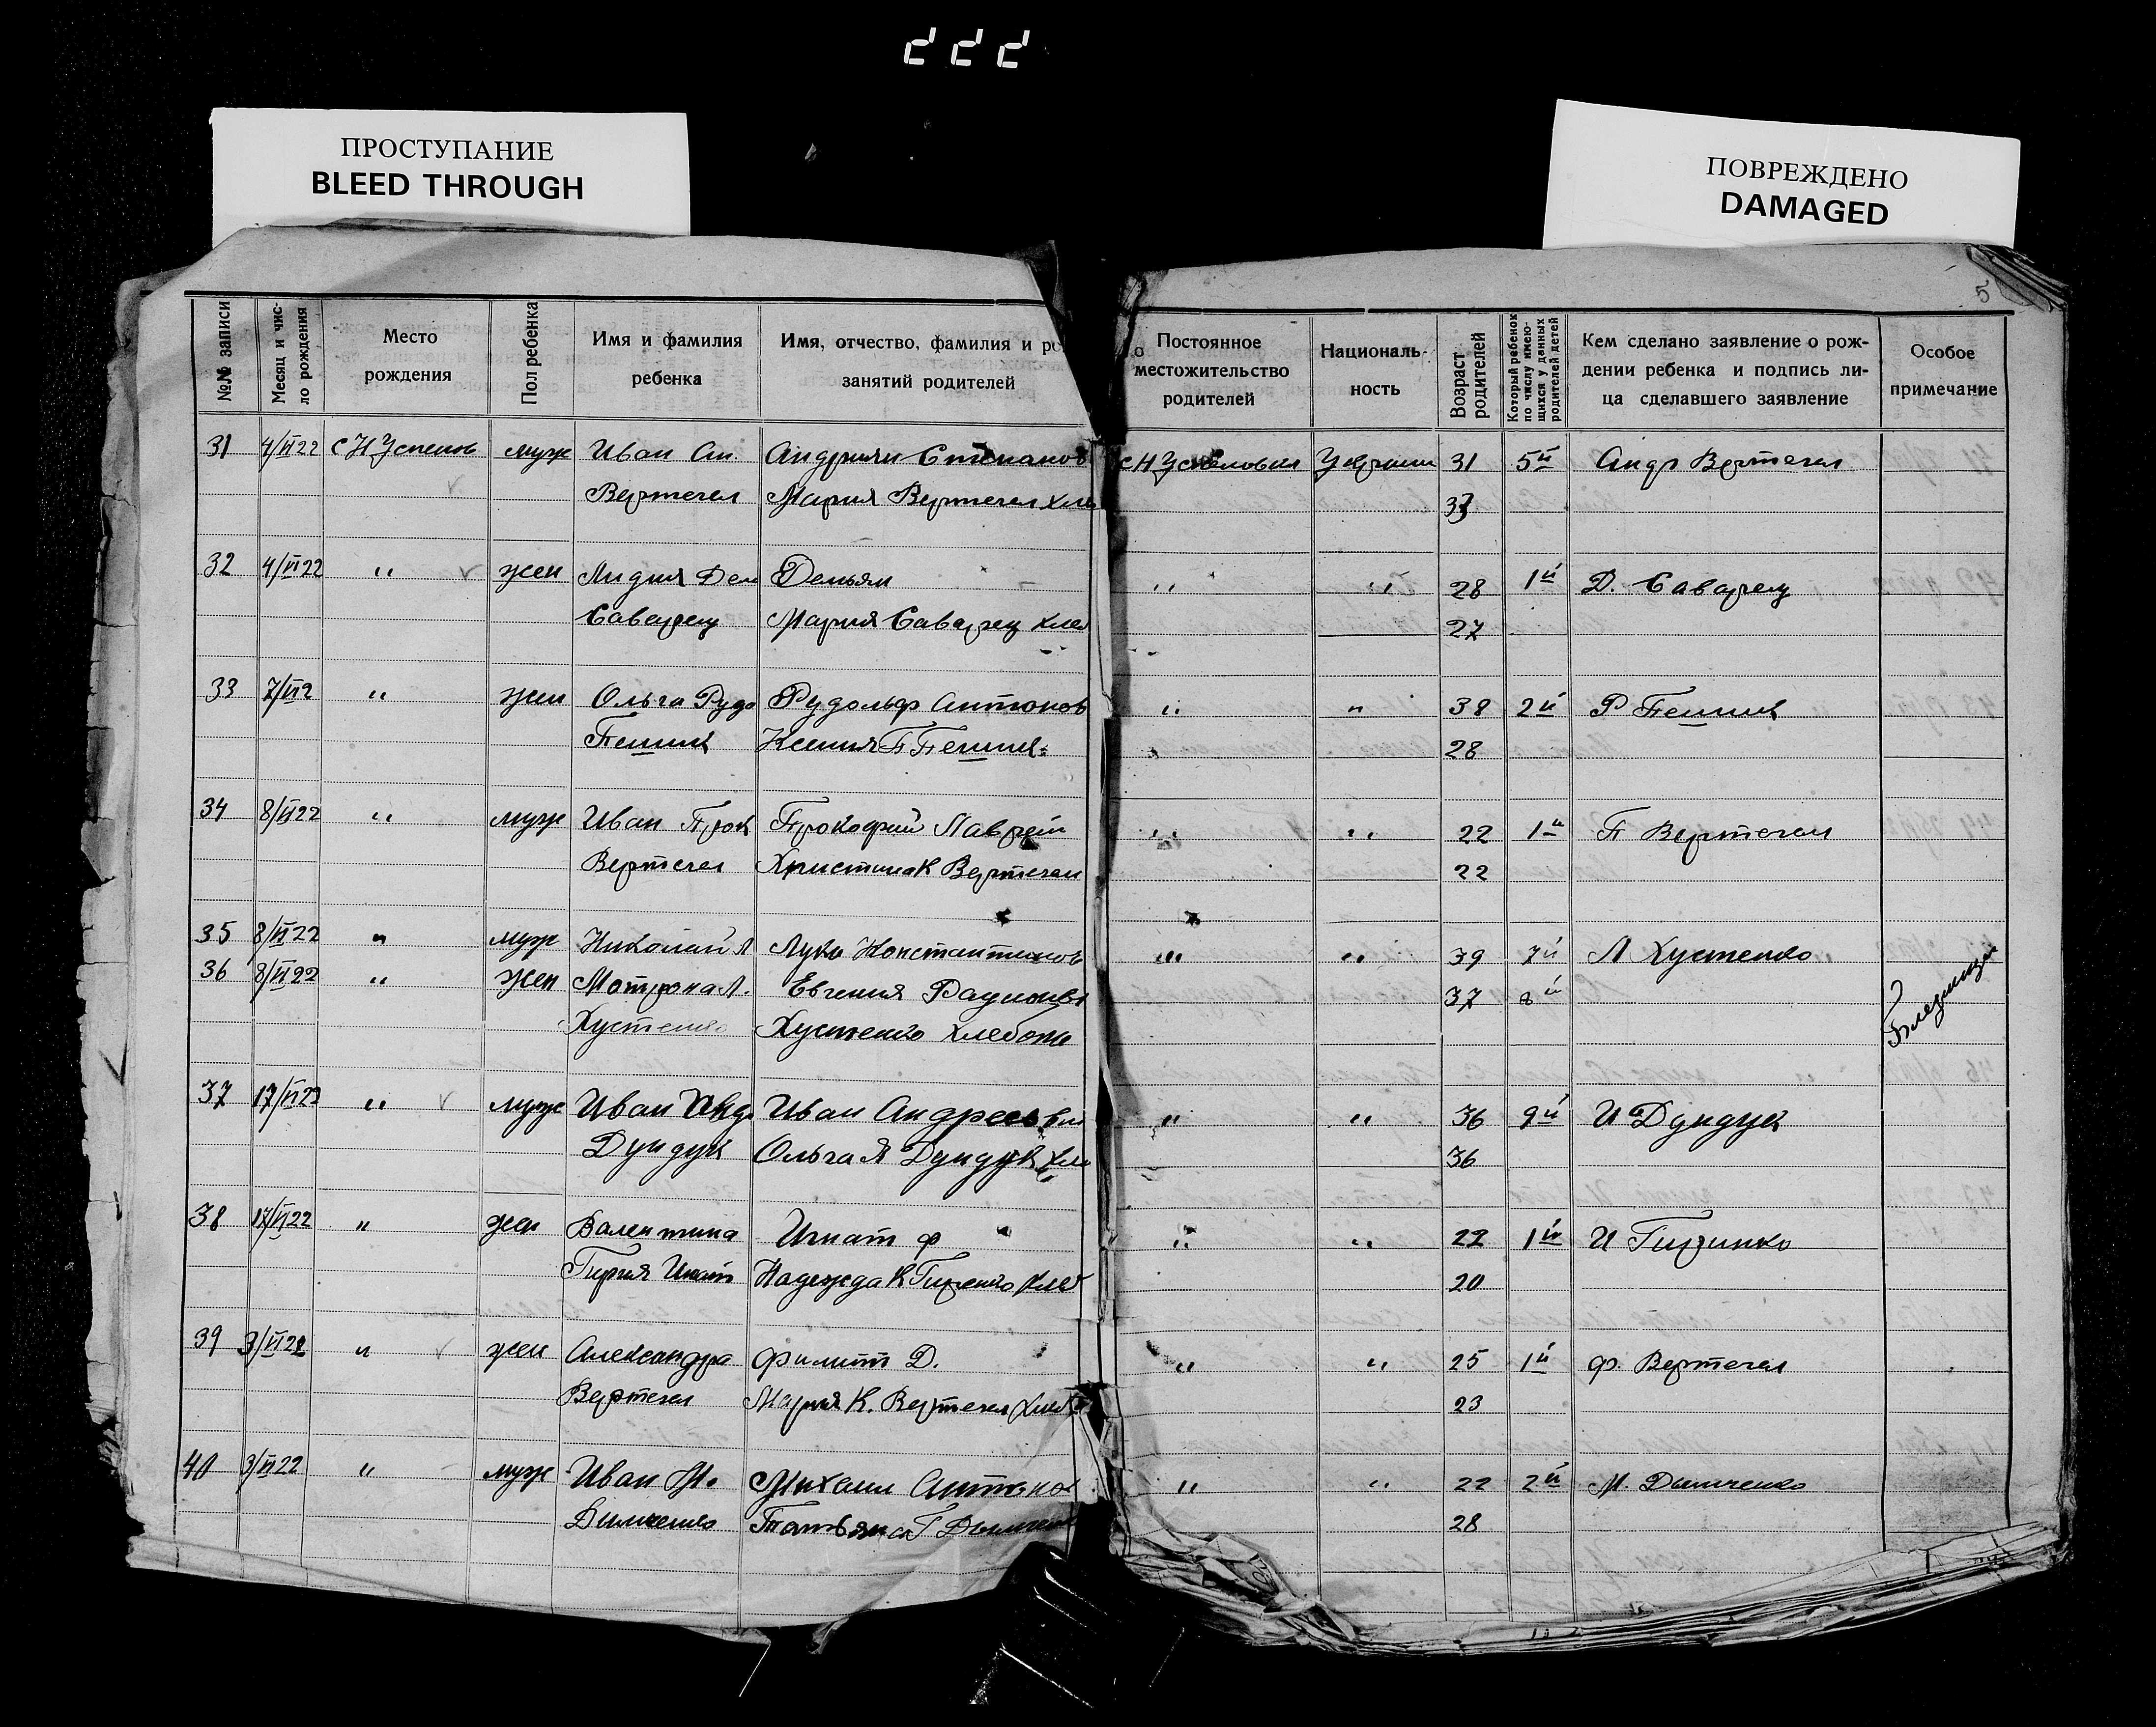 222
ПРОСТУПАНИЕ
BLEED THROUGH
ПОВРЕЖДЕНО
DAMAGED
5
№№ записи
Месяц и чис-
ло рождения
Место
рождения
Пол ребенка
Имя и фамилия
ребенка
Имя, отчество, фамилия и ро
занятий родителей
Постоянное
местожительство
родителей
Националь-
ность
Возраст
родителей
Который ребенок
по числу имею-
щихся у данных
родителей детей
Кем сделано заявление о рож-
дении ребенка и подпись ли-
ца сделавшего заявление
Особое
примечание
31 4/VI 22 с Н Успенов муж Иван Ан. Андриян Степанов с Н Успеновка Украин 31 5й Андр Вертегел
Вертегел Мария Вертегел хле 33
32 4/VI 22 " жен Лидия Дем Демьян " " 28 1й Д. Саварец
Саварец Мария Саварец хлеб 27
33 7/VI 2 " жен Ольга Рудо Рудольф Антонов " " 38 2й Р
Ксения П 28
34 8/VI 22 " муж Иван Прок Прокофий Лаврен " " 22 1й П Вертегел
Вертегел Христина К Вертегел 22
35 8/VI 22 " муж Николай Л Лука Константинов " " 39 7й Л Хустенко
36 8/VI 22 " жен Мотрона Л. Евгения 37 8й Близнецы
Хустенко Хустенко хлебопа
37 17/VI 22 " муж Иван Иван Андреев " " 36 9й И Дундук
Дундук Ольга Я Дундук хле 36
38 17/VI 22 " жен Валентина Игнат Ф " " 22 1й И Гиренко
Надежда К Гиренко хлеб 20
39 3/VI 22 " жен Александра Филипп Д. " " 25 1й Ф. Вертегел
Вертегел Мария К. Вертегел хлеб 23
40 3/VI 22 " муж Иван М. Михаил Антонов " " 22 2й М. Дымченко
Дымченко Татьяна Г Дымченк 28